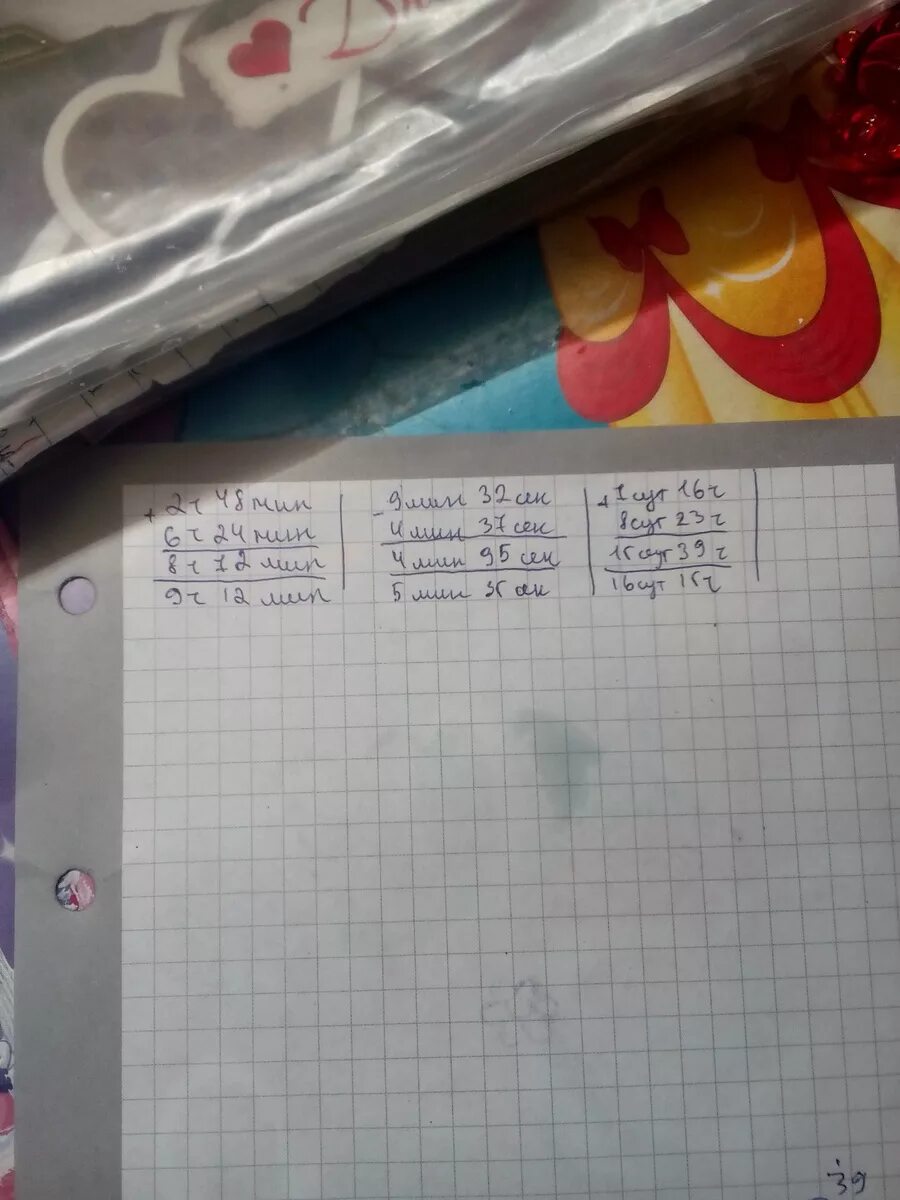 Dn
+ 2ч 48 мин
6ч 24 мин
8ч 72 мин
9ч 12 мин
- 9 мин 32 сек
4 мин 37 сек
4 мин 95 сек
5 мин 35 сек
+ 7 сут 16ч
8 сут 23ч
15 сут 39ч
16 сут 15ч
39